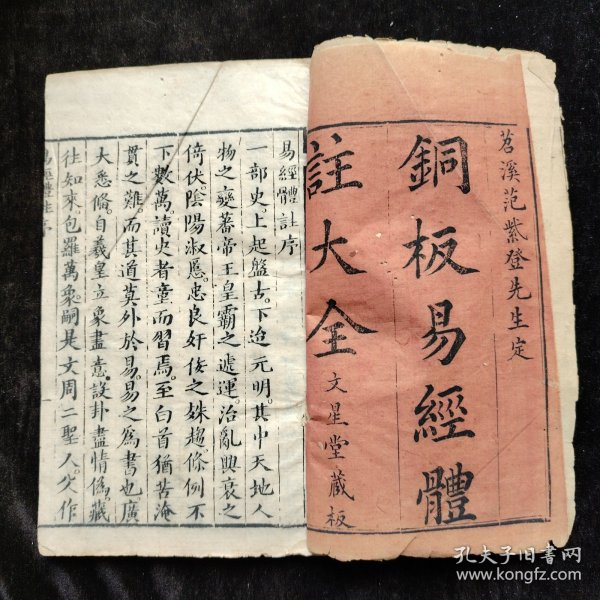 苕溪范紫登先生定
銅板易經體
註大全
文星堂藏板
易經體註序
一部史。上起盤古。下迨元明。其中天地人
物之變蕃帝王皇霸之遞運。治亂興衰之
倚伏。陰陽淑慝忠良奸佞之姝趨條例不
下數萬。讀史者童而習焉。至白首猶苦淹
貫之難。而其道莫外於易。易之為書也廣
大悉備。自羲皇立象盡意設卦盡情偽。藏
往知來。包羅萬象。嗣是文周二聖人。爻作
易經體註序
孔夫子旧书网
www.kongfz.com